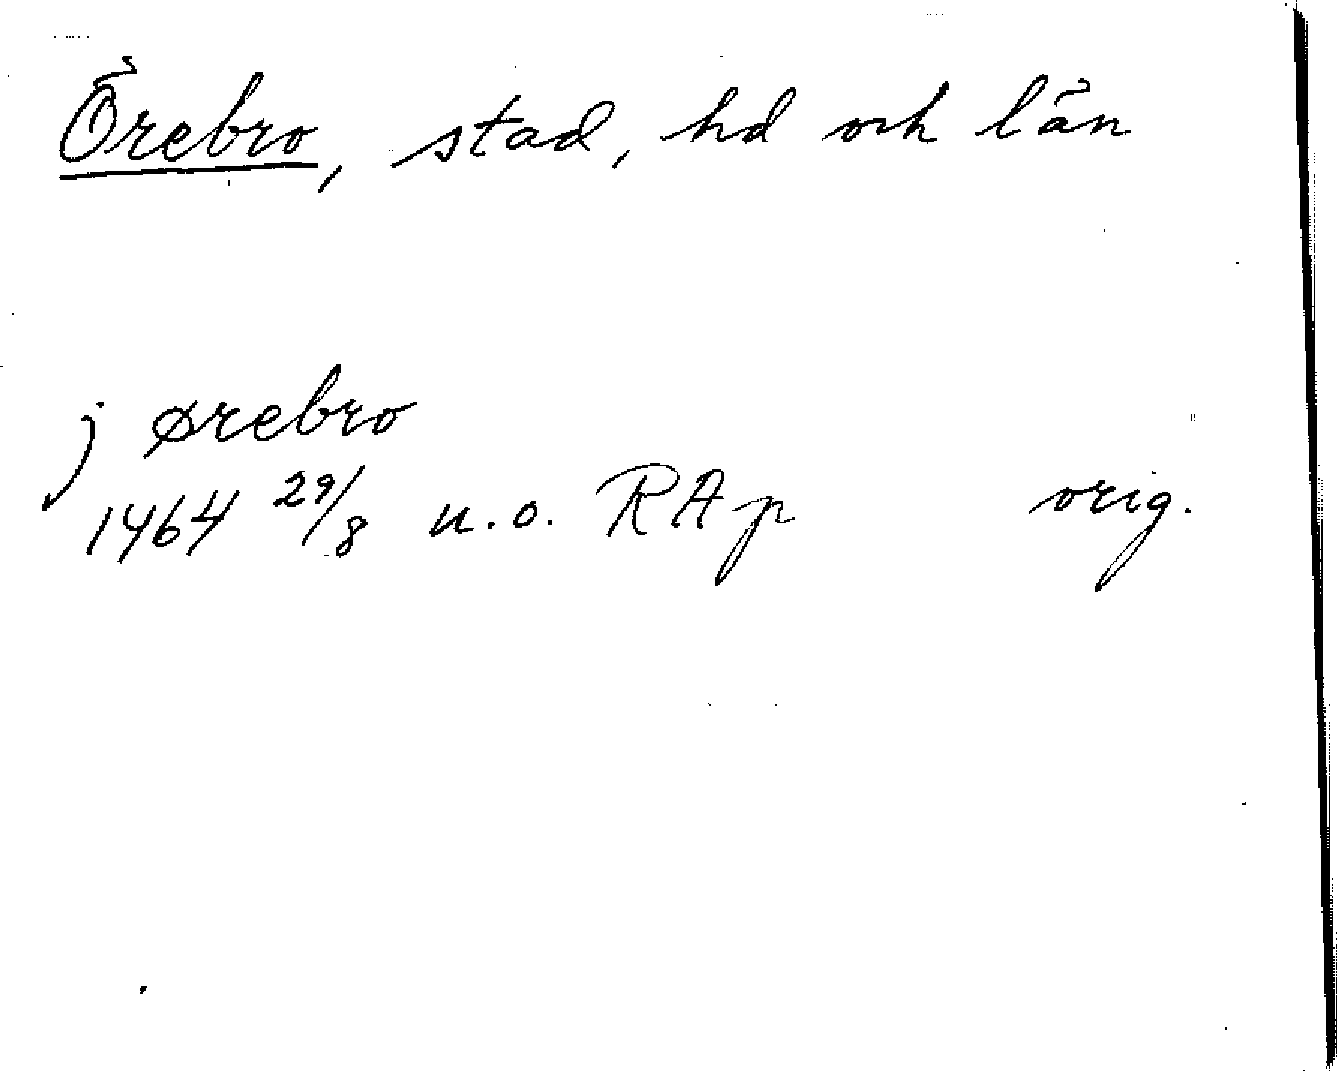 Örebro, stad, hd och län
j ørebro
1464 29/8 u.o. RAp orig.